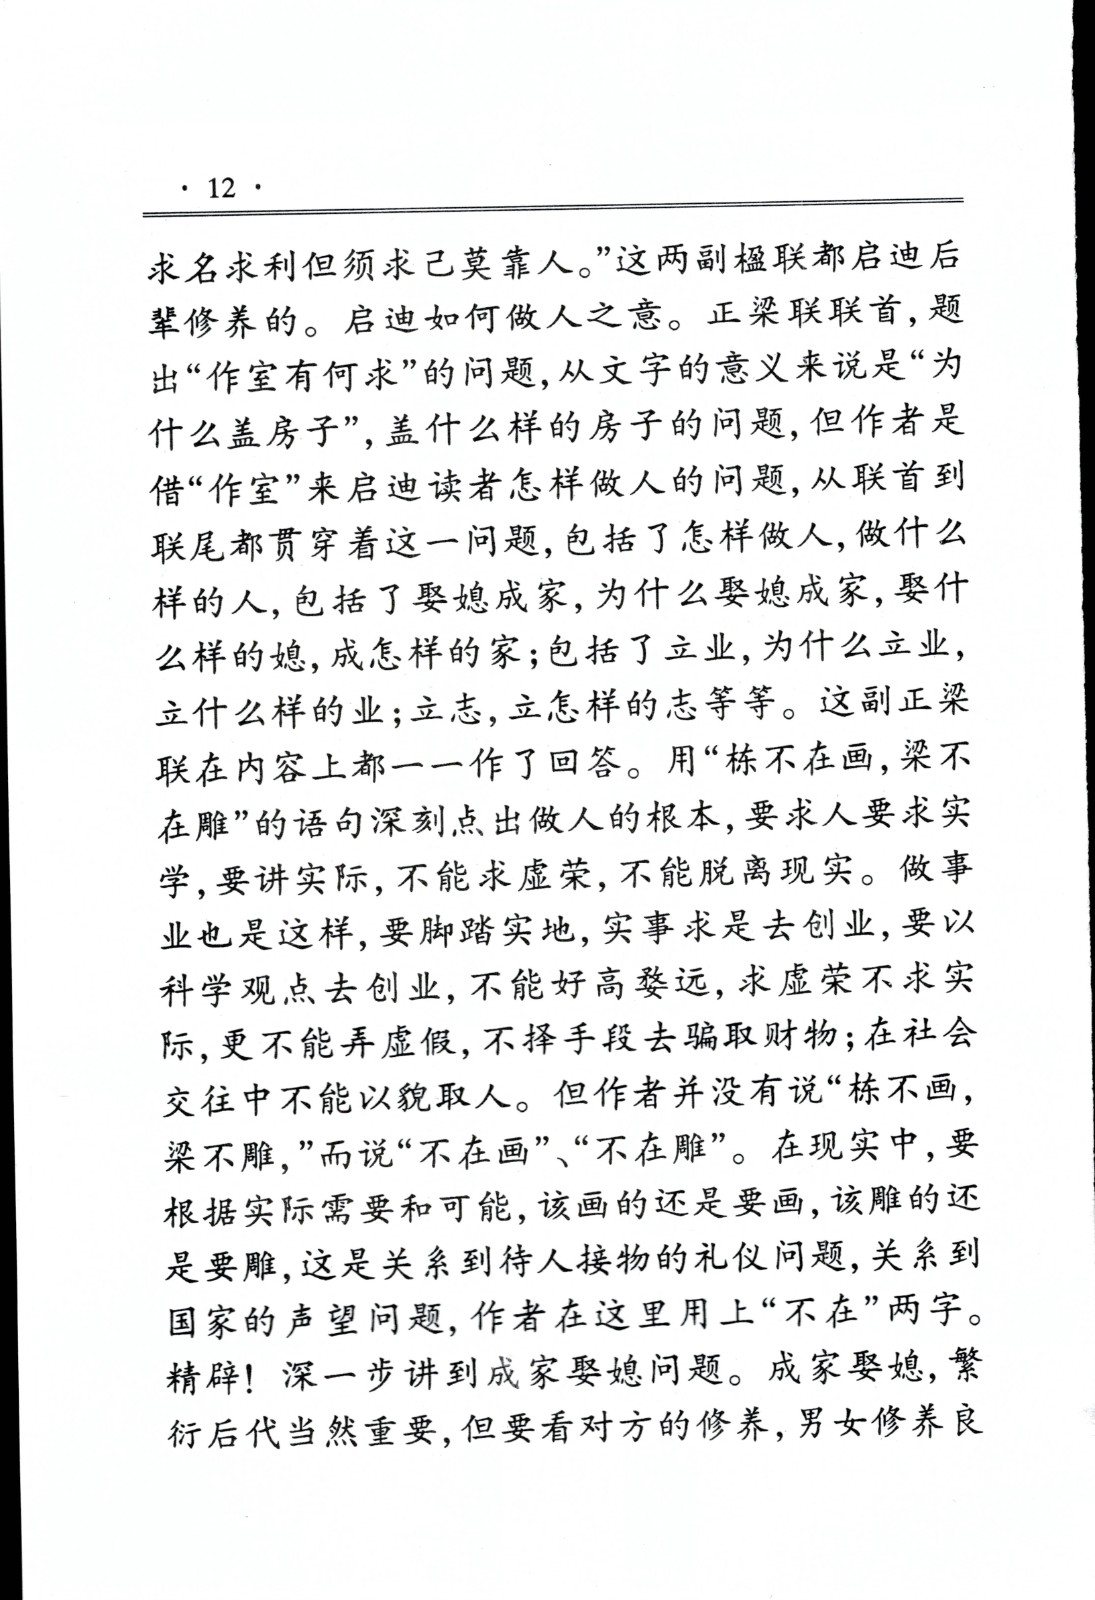 · 12 ·
求名求利但须求己莫靠人。”这两副楹联都启迪后
辈修养的。启迪如何做人之意。正梁联联首，题
出“作室有何求”的问题，从文字的意义来说是“为
什么盖房子”，盖什么样的房子的问题，但作者是
借“作室”来启迪读者怎样做人的问题，从联首到
联尾都贯穿着这一问题，包括了怎样做人，做什么
样的人，包括了娶媳成家，为什么娶媳成家，娶什
么样的媳，成怎样的家；包括了立业，为什么立业，
立什么样的业；立志，立怎样的志等等。这副正梁
联在内容上都一一作了回答。用“栋不在画，梁不
在雕”的语句深刻点出做人的根本，要求人要求实
学，要讲实际，不能求虚荣，不能脱离现实。做事
业也是这样，要脚踏实地，实事求是去创业，要以
科学观点去创业，不能好高婺远，求虚荣不求实
际，更不能弄虚假，不择手段去骗取财物；在社会
交往中不能以貌取人。但作者并没有说“栋不画，
梁不雕，”而说“不在画”、“不在雕”。在现实中，要
根据实际需要和可能，该画的还是要画，该雕的还
是要雕，这是关系到待人接物的礼仪问题，关系到
国家的声望问题，作者在这里用上“不在”两字。
精辟！深一步讲到成家娶媳问题。成家娶媳，繁
衍后代当然重要，但要看对方的修养，男女修养良